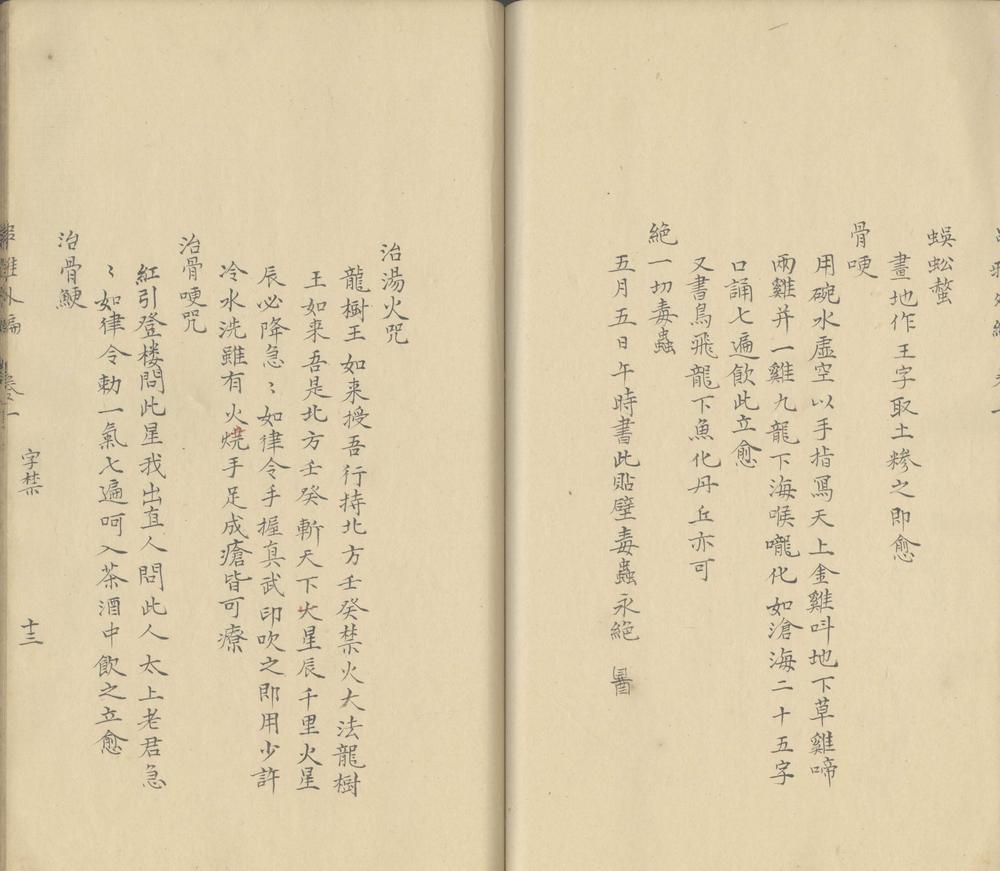 蜈蚣螫
畫地作王字取土糝之即愈
骨哽
用碗水虛空以手指寫天上金雞呌地下草雞啼
兩雞并一雞九龍下海喉嚨化如滄海二十五字
口誦七遍飲此立愈
又書鳥飛龍下魚化丹丘亦可
絕一切毒蟲
五月五日午時書此貼壁毒蟲永絕
治湯火咒
龍樹王如来授吾行持北方壬癸禁火大法龍樹
王如来吾是北方壬癸斬天下火星辰千里火星
辰必降急〻如律令手握真武印吹之即用少許
冷水洗雖有火燒手足成瘡皆可療
治骨哽咒
紅引登楼問此星我出直人問此人太上老君急
〻如律令勅一氣七遍呵入茶酒中飲之立愈
治骨鯁
字禁
十三